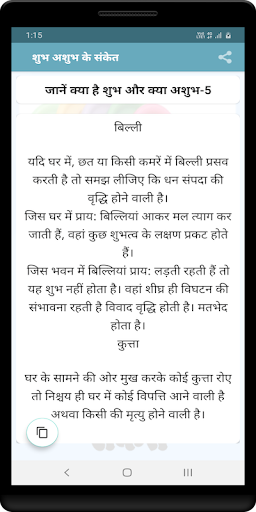 1:15
शुभ अशुभ के संकेत
जानें क्या है शुभ और क्या अशुभ-5
बिल्ली
यदि घर में, छत या किसी कमरें में बिल्ली प्रसव
करती है तो समझ लीजिए कि धन संपदा की
वृद्धि होने वाली है।
जिस घर में प्राय: बिल्लियां आकर मल त्याग कर
जाती हैं, वहां कुछ शुभत्व के लक्षण प्रकट होते
हैं।
जिस भवन में बिल्लियां प्राय: लड़ती रहती हैं तो
यह शुभ नहीं होता है। वहां शीघ्र ही विघटन की
संभावना रहती है विवाद वृद्धि होती है। मतभेद
होता है।
कुत्ता
घर के सामने की ओर मुख करके कोई कुत्ता रोए
तो निश्चय ही घर में कोई विपत्ति आने वाली है
अथवा किसी की मृत्यु होने वाली है।